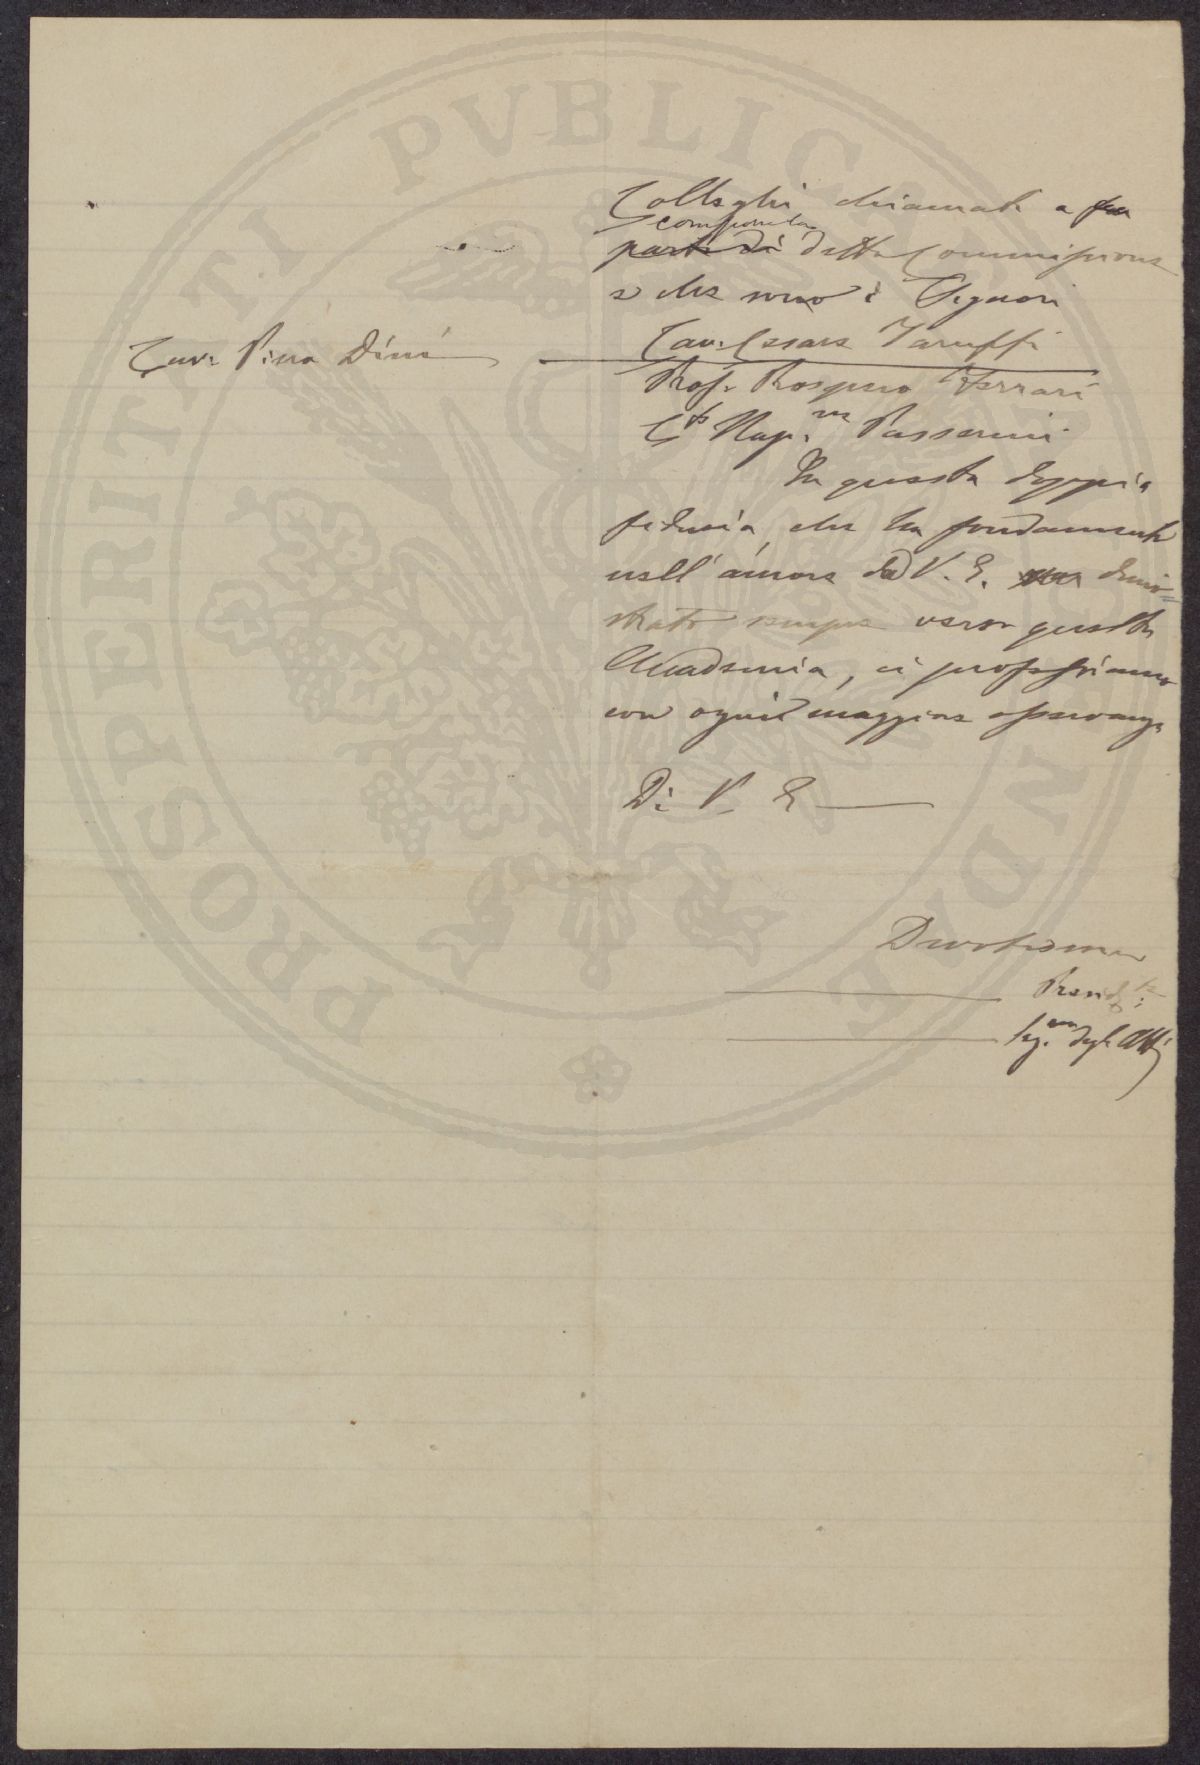 PROSPERITATI PUBLICAE AUGENDAE
Colleghi chiamati a far
componenti
parte di detta Commissione
e che sono i Signori
Cav. Cesare Taruffi
Cav. Piero Dini
Prof. Prospero Ferrari
Cte Nap.ne Passerini
In questa doppia
fiducia, che ha fondamento
nell'amore da V. E. dimo=
strato sempre verso questa
Accademia, ci professiamo
con ogni maggiore osservanza
Di V. E.
Devotissimi
Presid.te
Seg.rio degli Atti